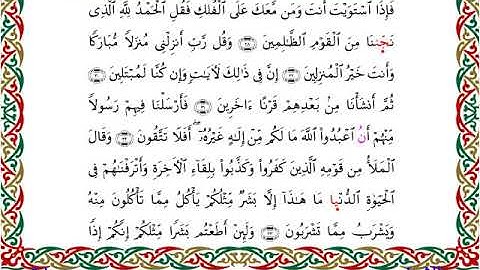 فَإِذَا ٱسْتَوَيْتَ أَنتَ وَمَن مَّعَكَ عَلَى ٱلْفُلْكِ فَقُلِ ٱلْحَمْدُ لِلَّهِ ٱلَّذِى
نَجَّىٰنَا مِنَ ٱلْقَوْمِ ٱلظَّٰلِمِينَ ﴿٢٨﴾ وَقُل رَّبِّ أَنزِلْنِى مُنزَلًا مُّبَارَكًا
وَأَنتَ خَيْرُ ٱلْمُنزِلِينَ ﴿٢٩﴾ إِنَّ فِى ذَٰلِكَ لَءَايَٰتٍ وَإِن كُنَّا لَمُبْتَلِينَ ﴿٣٠﴾
ثُمَّ أَنشَأْنَا مِنۢ بَعْدِهِمْ قَرْنًا ءَاخَرِينَ ﴿٣١﴾ فَأَرْسَلْنَا فِيهِمْ رَسُولًا
مِّنْهُمْ أَنُ ٱعْبُدُوا۟ ٱللَّهَ مَا لَكُم مِّنْ إِلَٰهٍ غَيْرُهُۥٓ ۖ أَفَلَا تَتَّقُونَ ﴿٣٢﴾ وَقَالَ
ٱلْمَلَأُ مِن قَوْمِهِ ٱلَّذِينَ كَفَرُوا۟ وَكَذَّبُوا۟ بِلِقَآءِ ٱلْءَاخِرَةِ وَأَتْرَفْنَٰهُمْ فِى
ٱلْحَيَوٰةِ ٱلدُّنْيَا مَا هَٰذَآ إِلَّا بَشَرٌ مِّثْلُكُمْ يَأْكُلُ مِمَّا تَأْكُلُونَ مِنْهُ
وَيَشْرَبُ مِمَّا تَشْرَبُونَ ﴿٣٣﴾ وَلَئِنْ أَطَعْتُم بَشَرًا مِّثْلَكُمْ إِنَّكُمْ إِذًا